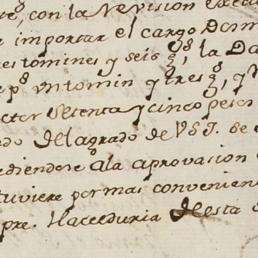 con la Revision
importar el cargo
tomines y seis gs, la Da
ps un tomin y tres gs, y
Setenta y cinco pesos
do del agrado de VSI. Se
ediendere àla aprovasion
tuviere por mas convenien
pre. Haceduria de esta